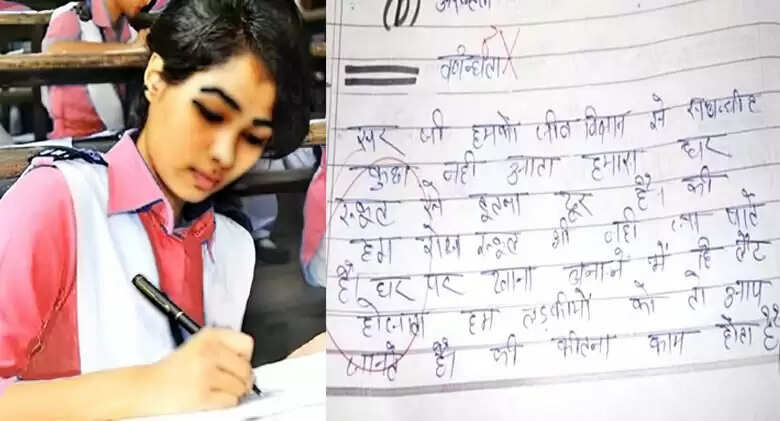 (D)
वर्णान्धता
सर जी हमको जीव विज्ञान से सम्बन्धीत
कुछ नही आता हमारा घर
स्कूल से इतना दूर है। की
हम रोज स्कूल भी नही जा पाते
है। घर पर खाना बनाने में हि लेट
होजाता हम लड़कीयों को तो आप
जानते है। की कीतना काम होता है